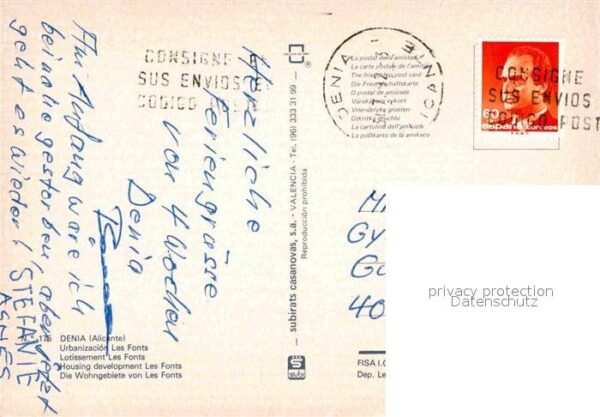 Herzliche
Feriengrüsse
von 4 Wochen
Denia
Am Anfang wäre ich
beinahe gestorben, aber jetzt
geht es wieder!
STEFANIE
AGNES
CONSIGNE E
SUS ENVIOS E
CODIGO POST
DENIA
La postal del amistad
La carte postale de l'amitié
The friendship post card
Die Freundschaftskarte
O postal de amizade
Vänskapens vykort
Vriendelijke groeten
La cartolina dell'amicizia
CONSIGNE
SUS ENVIOS
CODIGO POST
60
españa correos
subirats casanovas, s.a. - VALENCIA - Tel. (96) 333 31 99 -
Reproducción prohibida
176 DENIA (Alicante)
Urbanización Les Fonts
Lotissement Les Fonts
Housing development Les Fonts
Die Wohngebiete von Les Fonts
subi
GY
40
FISA I.G
Dep. Le
privacy protection
Datenschutz